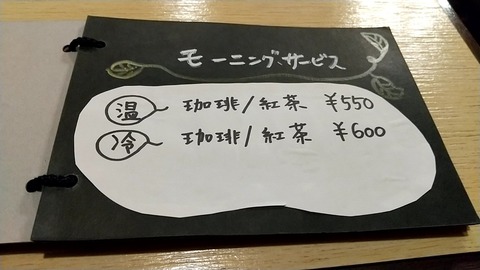 モーニングサービス
温 珈琲/紅茶 ¥550
冷 珈琲/紅茶 ¥600